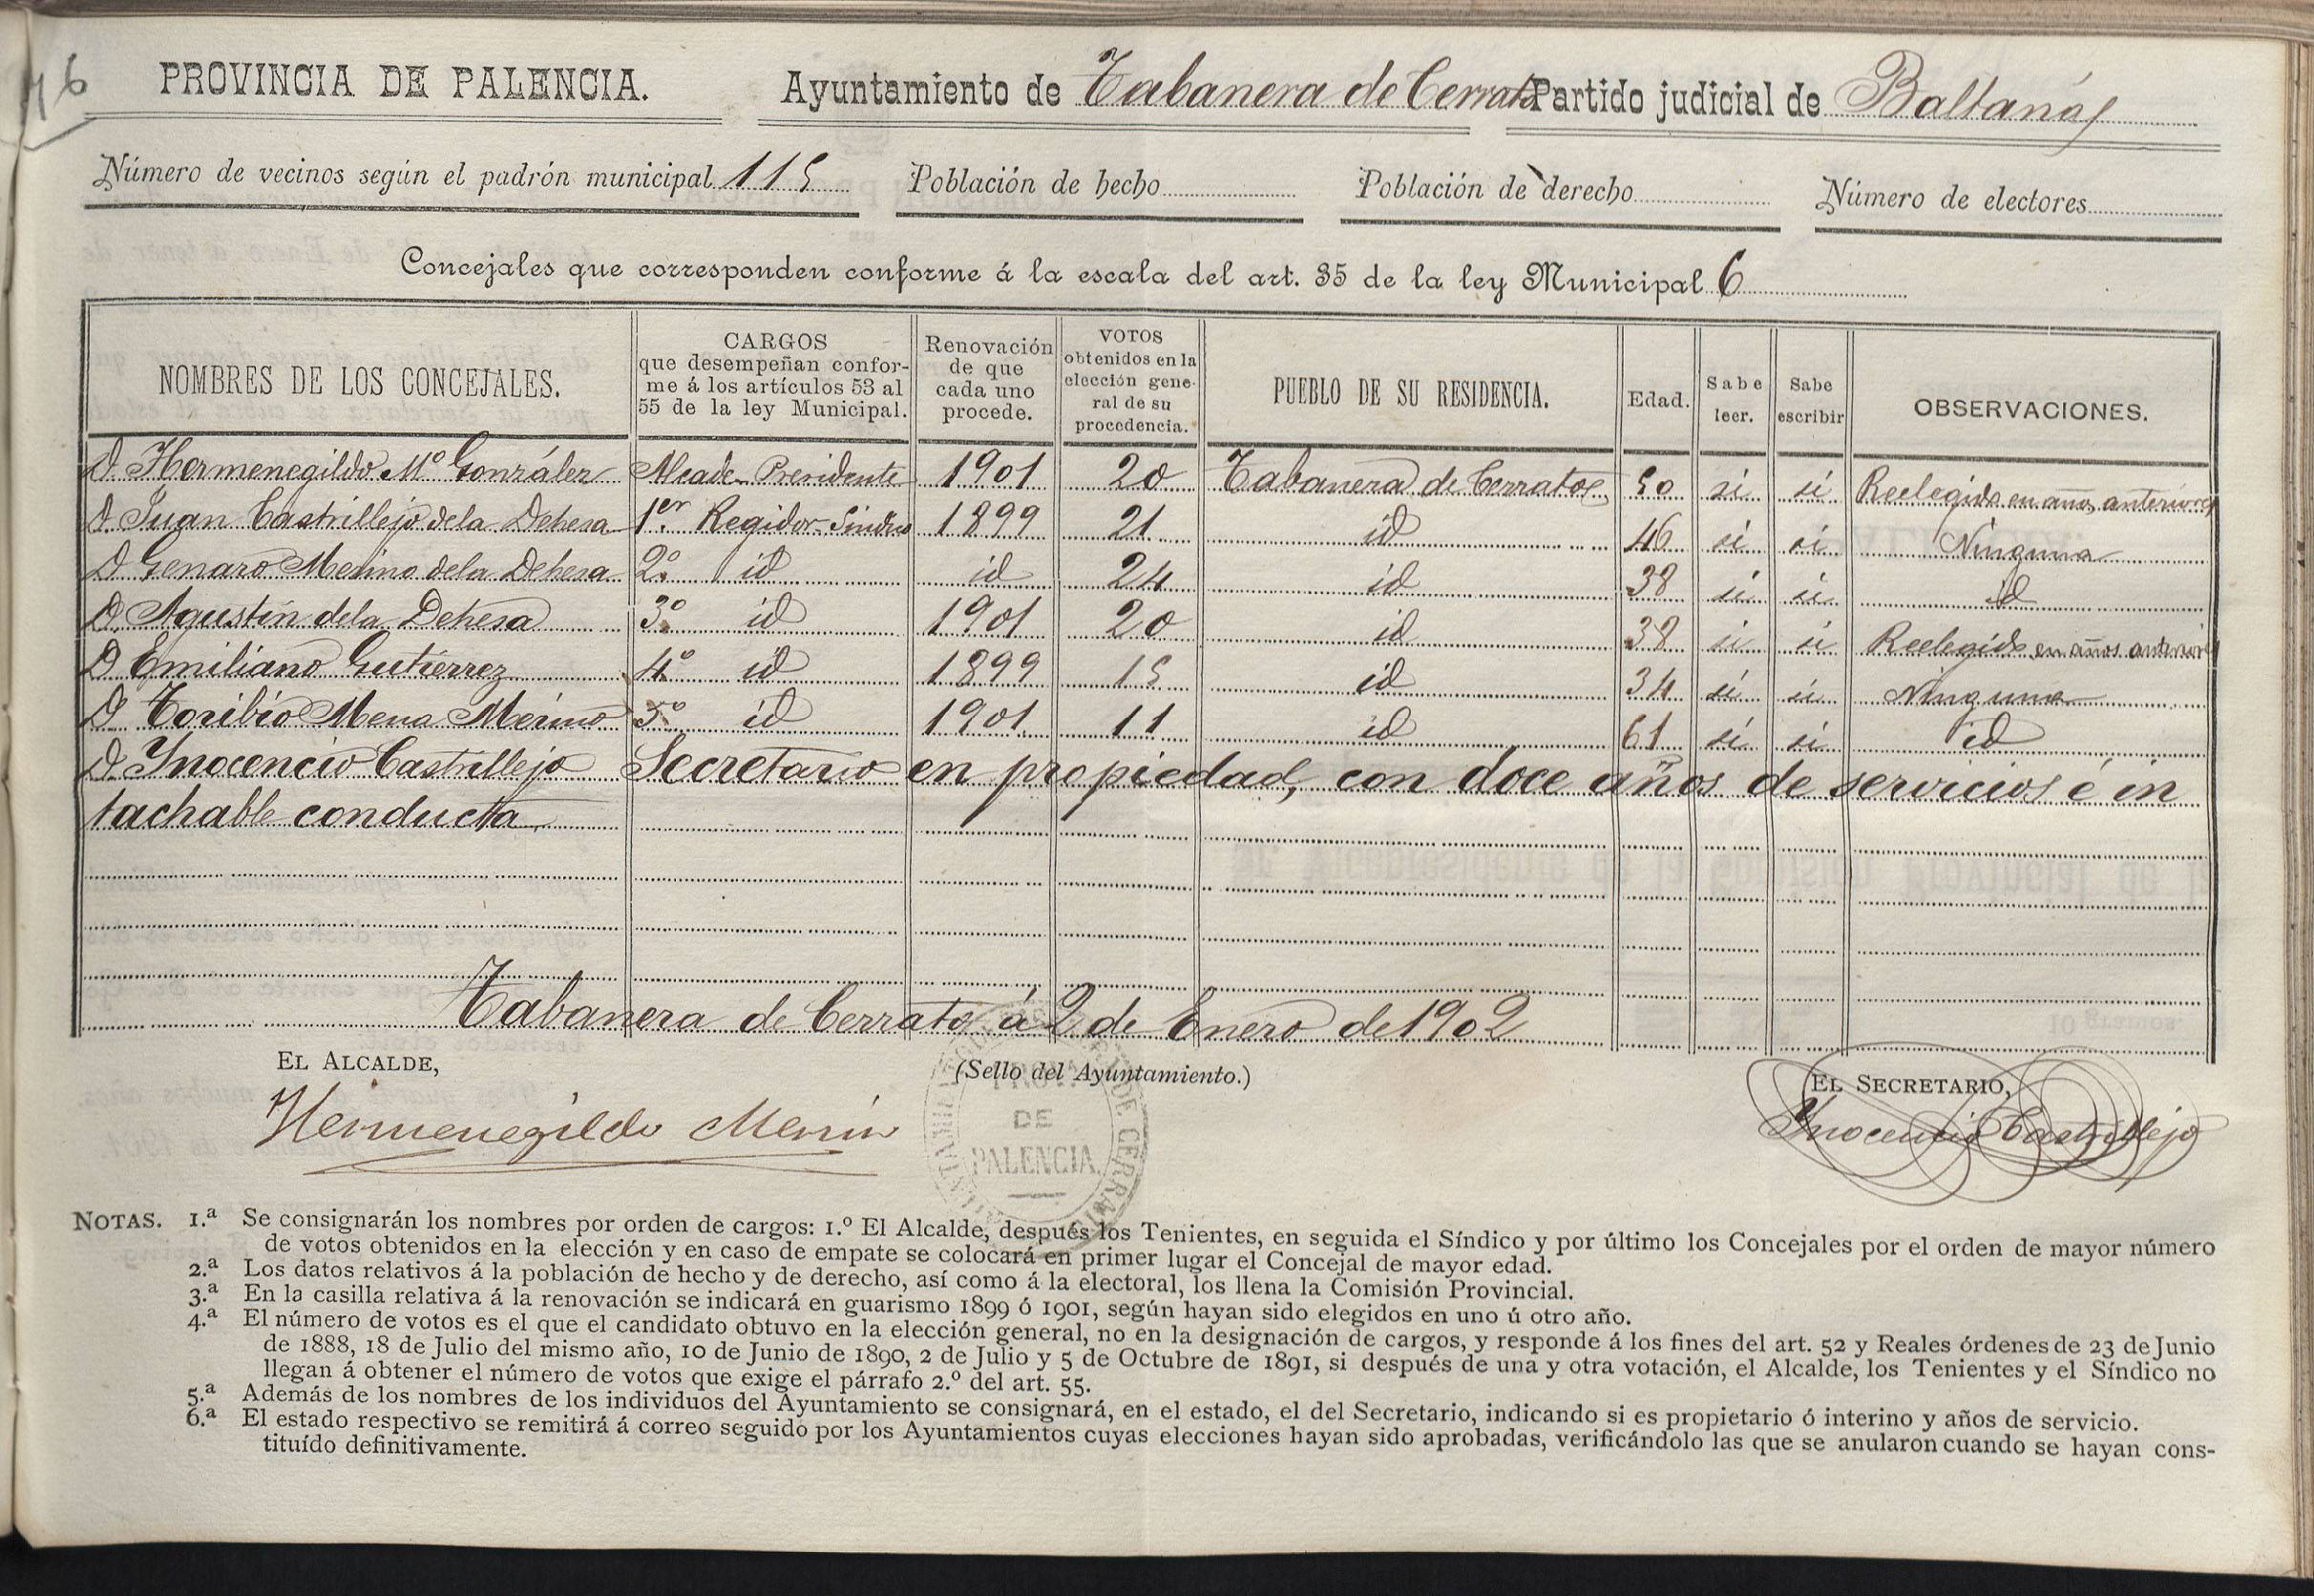 46
PROVINCIA DE PALENCIA. Ayuntamiento de Tabanera de Cerrato Partido judicial de Baltanás
Número de vecinos según el padrón municipal 115 Población de hecho Población de derecho Número de electores
Concejales que corresponden conforme á la escala del art. 35 de la ley Municipal 6
NOMBRES DE LOS CONCEJALES. CARGOS que desempeñan conforme á los artículos 53 al 55 de la ley Municipal. Renovación de que cada uno procede. VOTOS obtenidos en la elección general de su procedencia. PUEBLO DE SU RESIDENCIA. Edad. Sabe leer. Sabe escribir OBSERVACIONES.
D. Hermenegildo Mº González Alcade-Presidente 1901 20 Tabanera de Cerrato 50 si si Reelegido en años anteriores
D. Juan Castrillejo dela Dehesa 1er Regidor-Sindico 1899 21 id 46 si si Ninguna
D Genaro Merino dela Dehesa 2º id id 24 id 38 si si id
D. Agustín dela Dehesa 3º id 1901 20 id 38 si si Reelegido en años anteriores
D Emiliano Gutierrez 4º id 1899 15 id 34 si si Ninguna
D Toribio Mena Merino 5º id 1901 11 id 61 si si id
D. Ynocencio Castrillejo Secretario en propiedad, con doce años de servicios é in
tachable conducta
Tabanera de Cerrato á 2 de Enero de 1902
EL ALCALDE, (Sello del Ayuntamiento.) EL SECRETARIO,
Hermenegildo Merin Ynocencio Castrillejo
PROVA
DE
PALENCIA
NOTAS. 1.ª Se consignarán los nombres por orden de cargos: 1.º El Alcalde, después los Tenientes, en seguida el Síndico y por último los Concejales por el orden de mayor número
de votos obtenidos en la elección y en caso de empate se colocará en primer lugar el Concejal de mayor edad.
2.ª Los datos relativos á la población de hecho y de derecho, así como á la electoral, los llena la Comisión Provincial.
3.ª En la casilla relativa á la renovación se indicará en guarismo 1899 ó 1901, según hayan sido elegidos en uno ú otro año.
4.ª El número de votos es el que el candidato obtuvo en la elección general, no en la designación de cargos, y responde á los fines del art. 52 y Reales órdenes de 23 de Junio
de 1888, 18 de Julio del mismo año, 10 de Junio de 1890, 2 de Julio y 5 de Octubre de 1891, si después de una y otra votación, el Alcalde, los Tenientes y el Síndico no
llegan á obtener el número de votos que exige el párrafo 2.º del art. 55.
5.ª Además de los nombres de los individuos del Ayuntamiento se consignará, en el estado, el del Secretario, indicando si es propietario ó interino y años de servicio.
6.ª El estado respectivo se remitirá á correo seguido por los Ayuntamientos cuyas elecciones hayan sido aprobadas, verificándolo las que se anularon cuando se hayan cons-
tituído definitivamente.